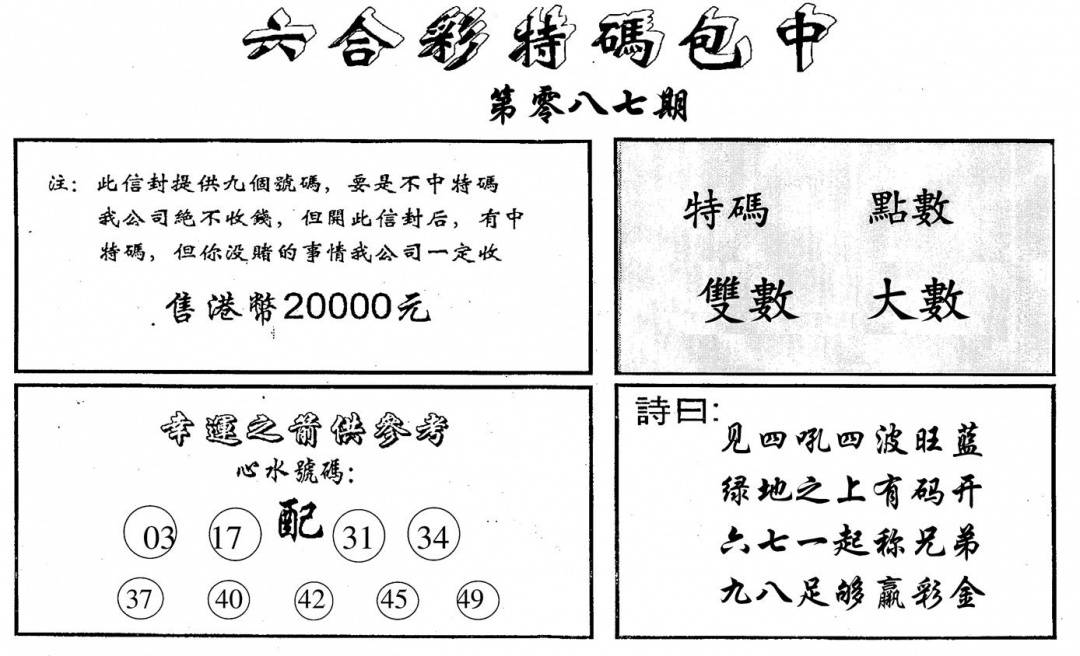 六合彩特碼包中
第零八七期
注：此信封提供九個號碼，要是不中特碼
我公司絕不收錢，但開此信封后，有中
特碼，但你没賭的事情我公司一定收
售港幣20000元
特碼 點數
雙數 大數
幸運之箭供參考
心水號碼：
03 17 配 31 34
37 40 42 45 49
詩曰：
见四吼四波旺蓝
绿地之上有码开
六七一起称兄弟
九八足够赢彩金